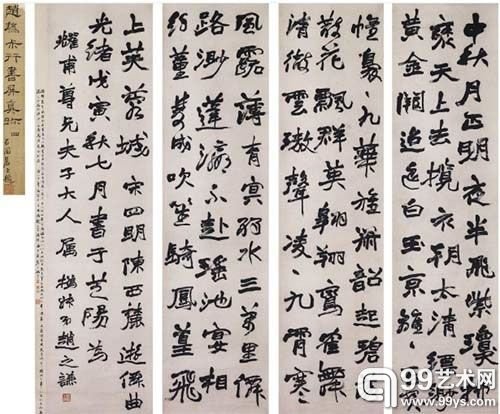 中秋月正明夜半飛紫瓊
天上去攬衣朝太清縹
黃金闕迢遙白玉京
九華旌韶起碧
散花飄群英翱翔鸞雀舞
清徹雲璈聲凌凌九霄寒
風露薄青冥弱水三萬里僊
路渺蓬瀛不赴瑤池宴相
約董雙成吹笙騎鳳凰飛
上芙蓉城 宋四明陳西麓遊僊曲
光緒戊寅秋七月書于芝陽為
耀甫尊兄夫子大人属 撝叔弟趙之謙
趙撝未行書屏真跡 四
99艺术网
www.99ys.com